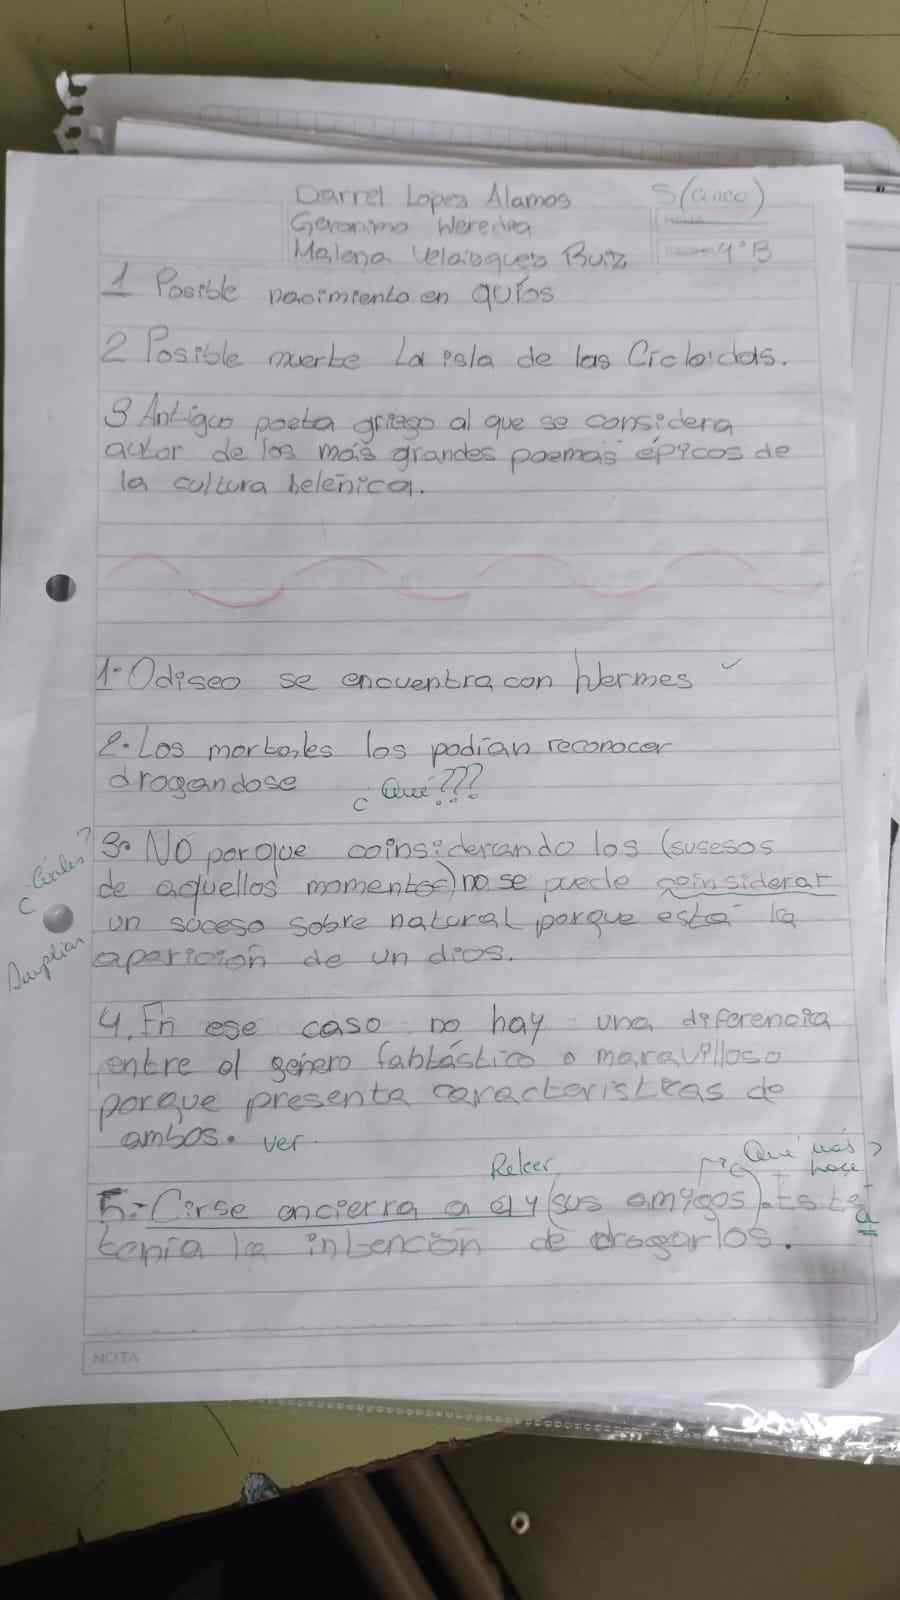 Darrel Lopez Alamos 5 (cinco)
Geronimo Heredia
Malena Velazquez Ruiz 4°B
1 Posible nacimiento en quíos
2 Posible muerte La isla de las Cicloidas.
3 Antiguo poeta griego al que se considera
autor de los más grandes poemas épicos de
la cultura helénica.
1- Odiseo se encuentra con Hermes ✓
2. Los mortales los podían reconocer
drogandose ¿Qué???
¿Cuáles?
3. No porque coinsiderando los (susesos
de aquellos momentos) no se puede coinsiderar
un suceso sobre natural porque está la
Ampliar
aparición de un dios.
4. En ese caso no hay una diferencia
entre el género fantástico o maravilloso
porque presenta caracteristicas de
ambos. ver.
Releer ¿Qué más hace?
5.- Cirse encierra a él y (sus amigos). Este
a
tenía la intención de drogarlos.
NOTA